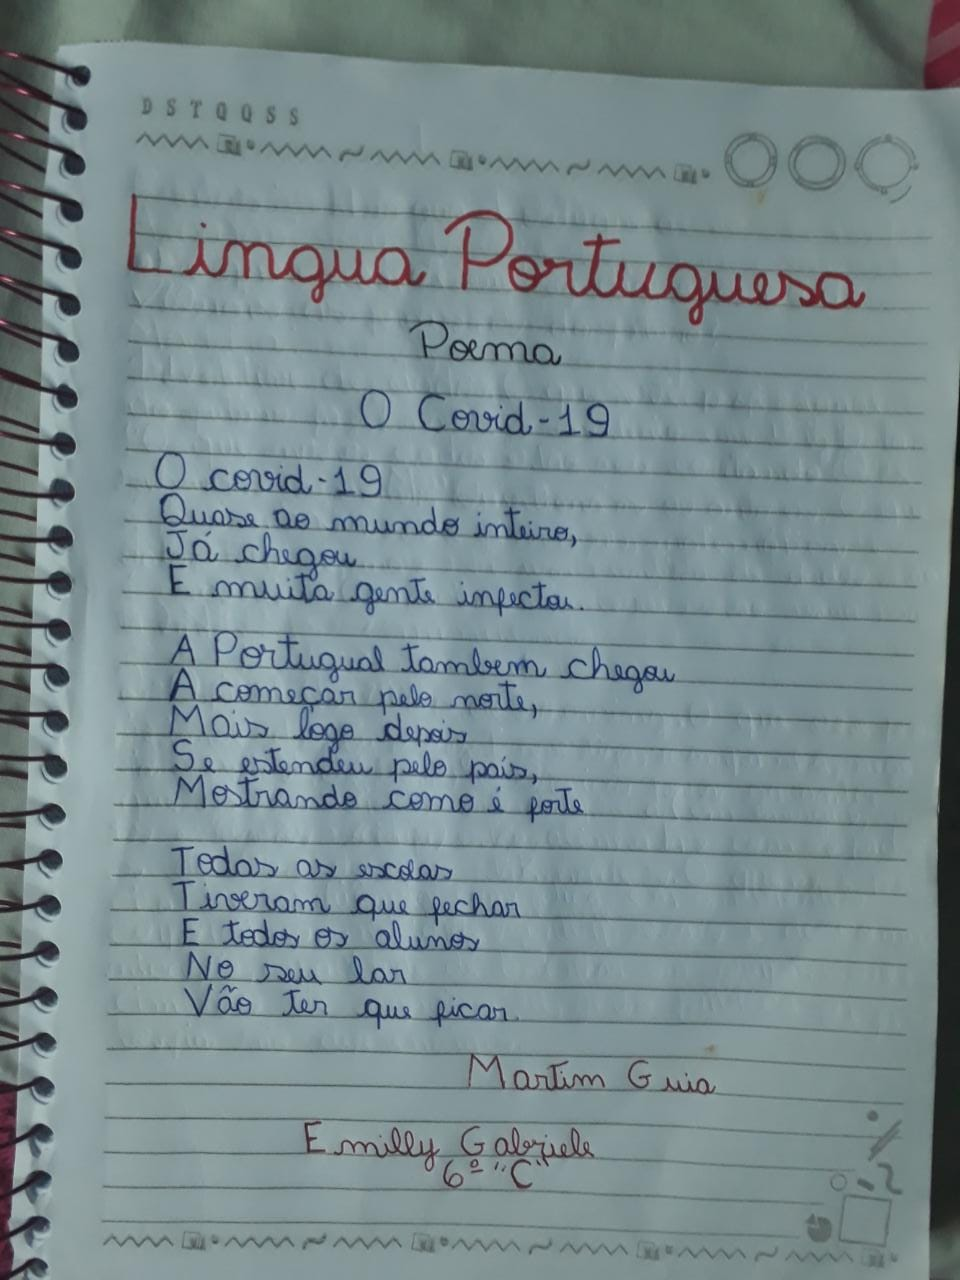 D S T Q Q S S
Lingua Portuguesa
Poema
O Covid-19
O covid-19
Quase ao mundo inteiro,
Já chegou
E muita gente infectou.
A Portugual tambem chegou
A começar pelo norte,
Mais logo depois
Se estendeu pelo pais,
Mostrando como é forte
Todas as escolas
Tiveram que fechar
E todos os alunos
No seu lar
Vão ter que ficar.
Martim Guia
Emilly Gabriele
6º "C"